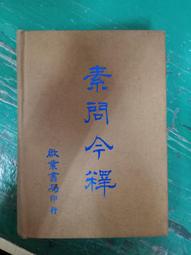 素問今釋
啟業書局印行